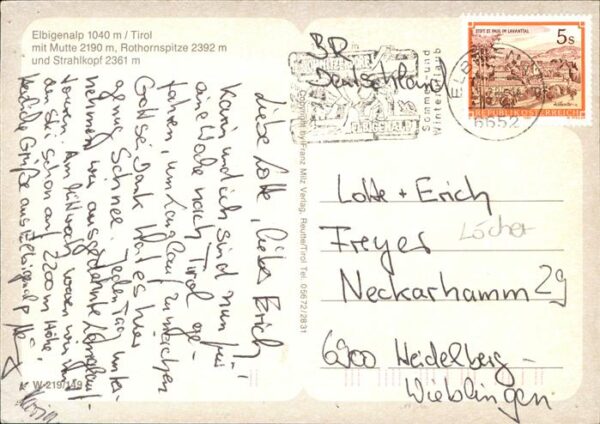 Elbigenalp 1040 m / Tirol
mit Mutte 2190 m, Rothornspitze 2392 m
und Strahlkopf 2361 m
Liebe Lotte, lieber Erich!
Karin und ich sind nun für
eine Woche nach Tirol ge-
fahren, um Langlauf zu machen
Gottseidank hat es hier
genug Schnee. Jeden Tag unter-
nehmen wir ausgedehnte Langlauf-
touren. Am Mittwoch waren wir mit
den Ski schon auf 2200 m Höhe.
Herzliche Grüße aus Elbigenalp
Karin
W-219/149
Copyright by Franz Milz Verlag, Reutte/Tirol Tel. 05672/2831
BR
Deutschland
ELBIGENALP
Sommer- und
Winterurlaub
6652
STIFT ST. PAUL IM LAVANTTAL
5 S
REPUBLIK ÖSTERREICH
Lotte + Erich
Freyer
Löcher
Neckarhamm 29
6900 Heidelberg-
Wieblingen